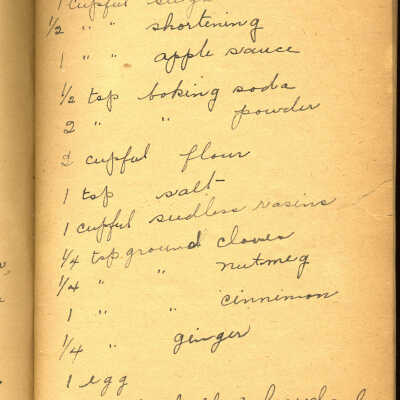 1 cupful
½ " " shortening
1 " " apple sauce
½ tsp baking soda
2 " " powder
2 cupful flour
1 tsp salt
1 cupful seedless rasins
¼ tsp. ground cloves
¼ " " nutmeg
1 " " cinnimon
¼ " ginger
1 egg